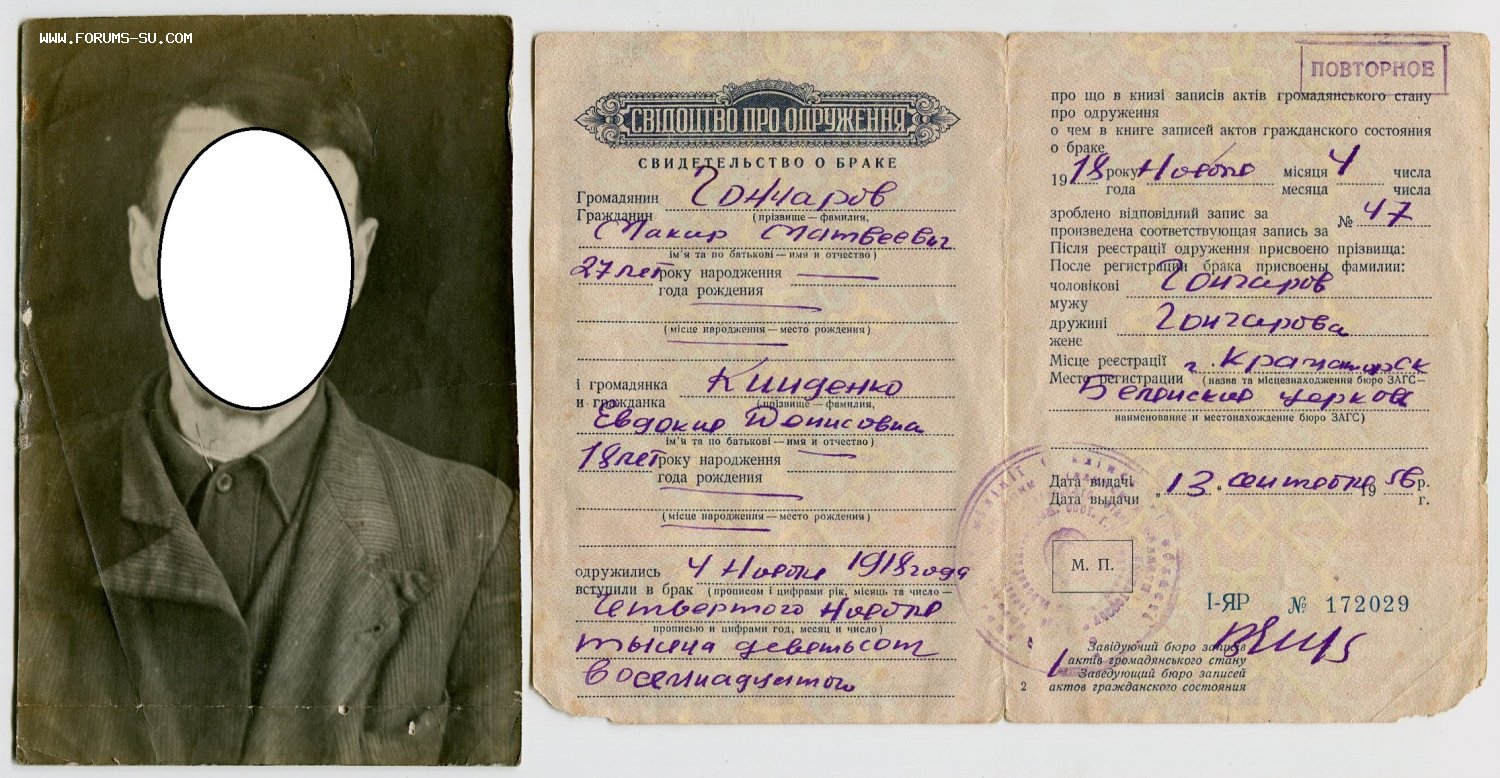 WWW.FORUMS-SU.COM
СВІДОЦТВО ПРО ОДРУЖЕННЯ
СВИДЕТЕЛЬСТВО О БРАКЕ
Громадянин Гончаров
Гражданин (прізвище — фамилия,
Макар Матвеевич
ім'я та по батькові — имя и отчество)
27 лет року народження
года рождения
(місце народження — место рождения)
і громадянка
и гражданка (прізвище — фамилия,
Евдокия Денисовна
ім'я та по батькові — имя и отчество)
18 лет року народження
года рождения
(місце народження — место рождения)
одружились 4 Ноября 1918 года
вступили в брак (прописом і цифрами рік, місяць та число —
Четвертого Ноября
прописью и цифрами год, месяц и число)
тысяча девятьсот
восемнадцатого
ПОВТОРНОЕ
про що в книзі записів актів громадянського стану
про одруження
о чем в книге записей актов гражданского состояния
о браке
1918 року Ноября місяця 4 числа
года месяца числа
зроблено відповідний запис за № 47
произведена соответствующая запись за
Після реєстрації одруження присвоєно прізвища:
После регистрации брака присвоены фамилии:
чоловікові Гончаров
мужу
дружині Гончарова
жене
Місце реєстрації г. Краматорск
Место регистрации (назва та місцезнаходження бюро ЗАГС —
церковь
наименование и местонахождение бюро ЗАГС)
Дата видачі
Дата выдачи „13“ сентября 1956 р.
г.
М. П.
І-ЯР № 172029
Завідуючий бюро записів
актів громадянського стану
Заведующий бюро записей
2 актов гражданского состояния